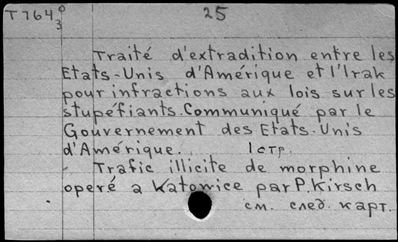 T 764 0/3 25
Traité d'extradition entre les
Etats-Unis d'Amérique et l'Irak
pour infractions aux lois sur les
stupéfiants. Communiqué par le
Gouvernement des Etats-Unis
d'Amérique. 1 стр.
Trafic illicite de morphine
operé a Katowice par P. Kirsch
см. след. карт.